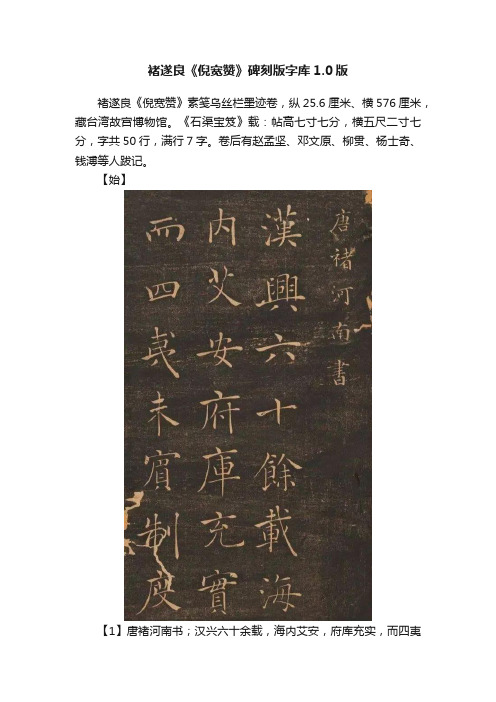 褚遂良《倪宽赞》碑刻版字库1.0版
褚遂良《倪宽赞》素笺乌丝栏墨迹卷，纵25.6厘米、横576厘米，
藏台湾故宫博物馆。《石渠宝笈》载：帖高七寸七分，横五尺二寸七
分，字共50行，满行7字。卷后有赵孟坚、邓文原、柳贯、杨士奇、
钱溥等人跋记。
【始】
唐褚河南書
漢興六十餘載海
内艾安府庫充實
而四夷未賓制度
【1】唐褚河南书；汉兴六十余载，海内艾安，府库充实，而四夷